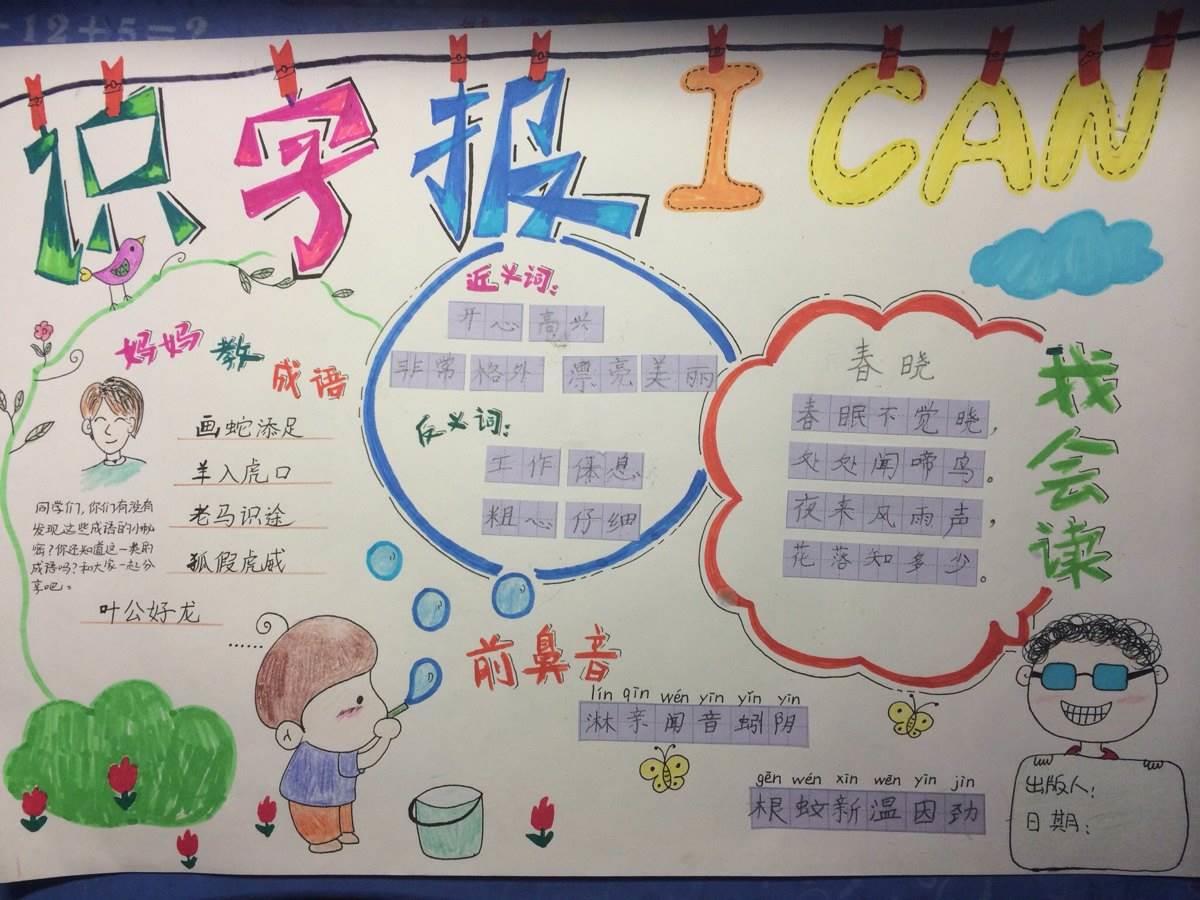 12+5=?
识字报 I CAN
妈妈教成语
画蛇添足
羊入虎口
老马识途
狐假虎威
叶公好龙
……
同学们,你们有没有
发现这些成语的小秘
密?你还知道这一类的
成语吗?和大家一起分
享吧。
近义词:
开心 高兴
非常 格外 漂亮 美丽
反义词:
工作 休息
粗心 仔细
春晓
春眠不觉晓,
处处闻啼鸟。
夜来风雨声,
花落知多少。
我会读
前鼻音
lín qīn wén yīn yǐn yīn
淋亲闻音蚓阴
gēn wén xīn wēn yīn jìn
根蚊新温因劲
出版人:
日期: